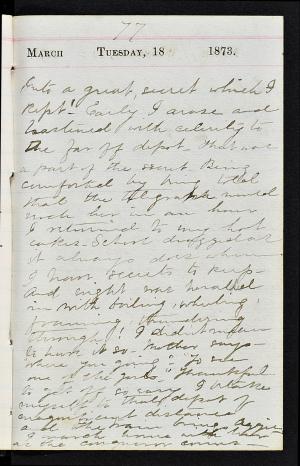 77
MARCH TUESDAY, 18 1873.
Into a great secret which I
kept! Early I arose and
hastened with celerity to
the far off depot. That was
a part of the secret. Being
comforted by being told
that the telegraph would
reach her in an hour
I returned to my hot
cakes. School dragged as
it always does when
I have secrets to keep.
And night was heralded
in with boiling, wheeling,
foaming, thundering
through! I didn't mean
to have it so. Mother says
where you going? To see
one of the girls. Thankful
to get off so easy I take
myself to that depot of
magnificent distances
and the train brings
I march home with her
as the conqueror comes